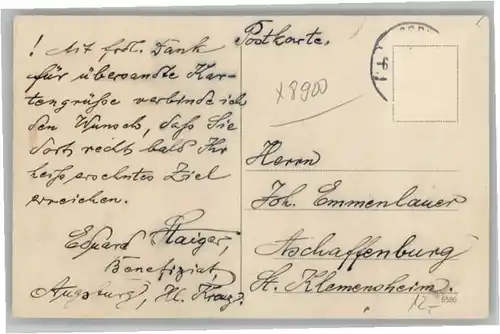 ! Mit frdl. Dank
für übersandte Kar-
tengrüße verbinde ich
den Wunsch, daß Sie
dort recht bald Ihr
heiß ersehntes Ziel
erreichen.
Eduard Haiger,
Benefiziat,
Augsburg, Hl. Kreuz.
Postkarte.
x8900
Herrn
Joh. Emmenlauer
Aschaffenburg
St. Klemensheim.
12.-
6580